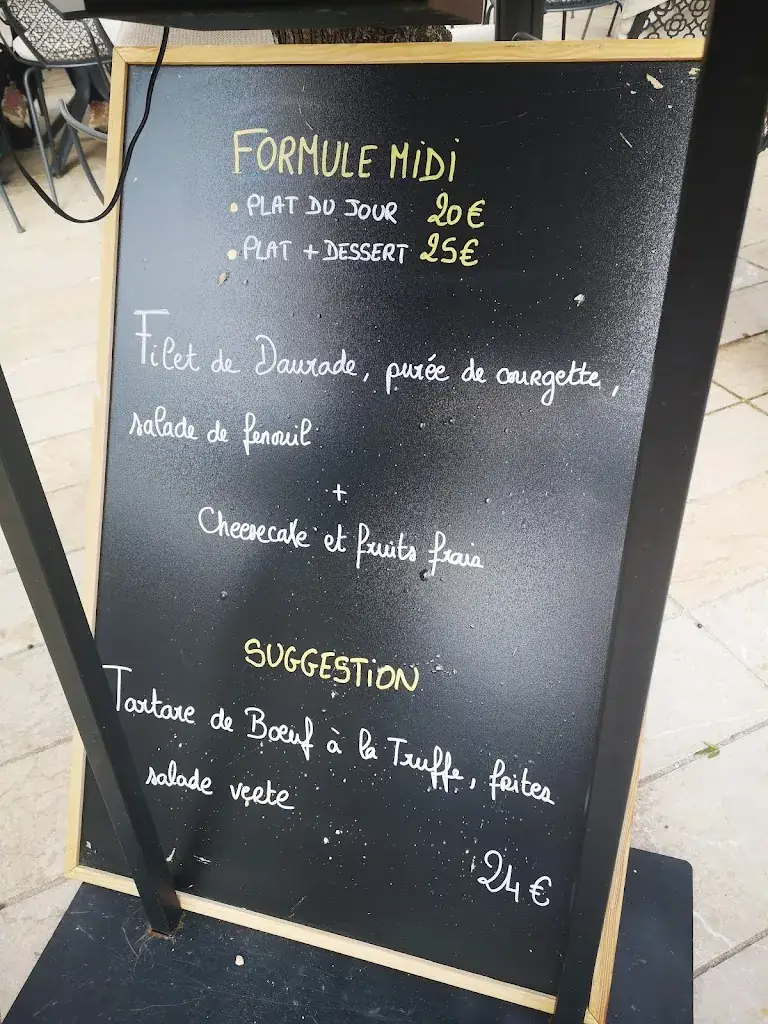 FORMULE MIDI
• PLAT DU JOUR 20€
• PLAT + DESSERT 25€
Filet de Daurade, purée de courgette,
salade de fenouil
+
Cheesecake et fruits frais
SUGGESTION
Tartare de Bœuf à la Truffe, frites
salade verte
24€